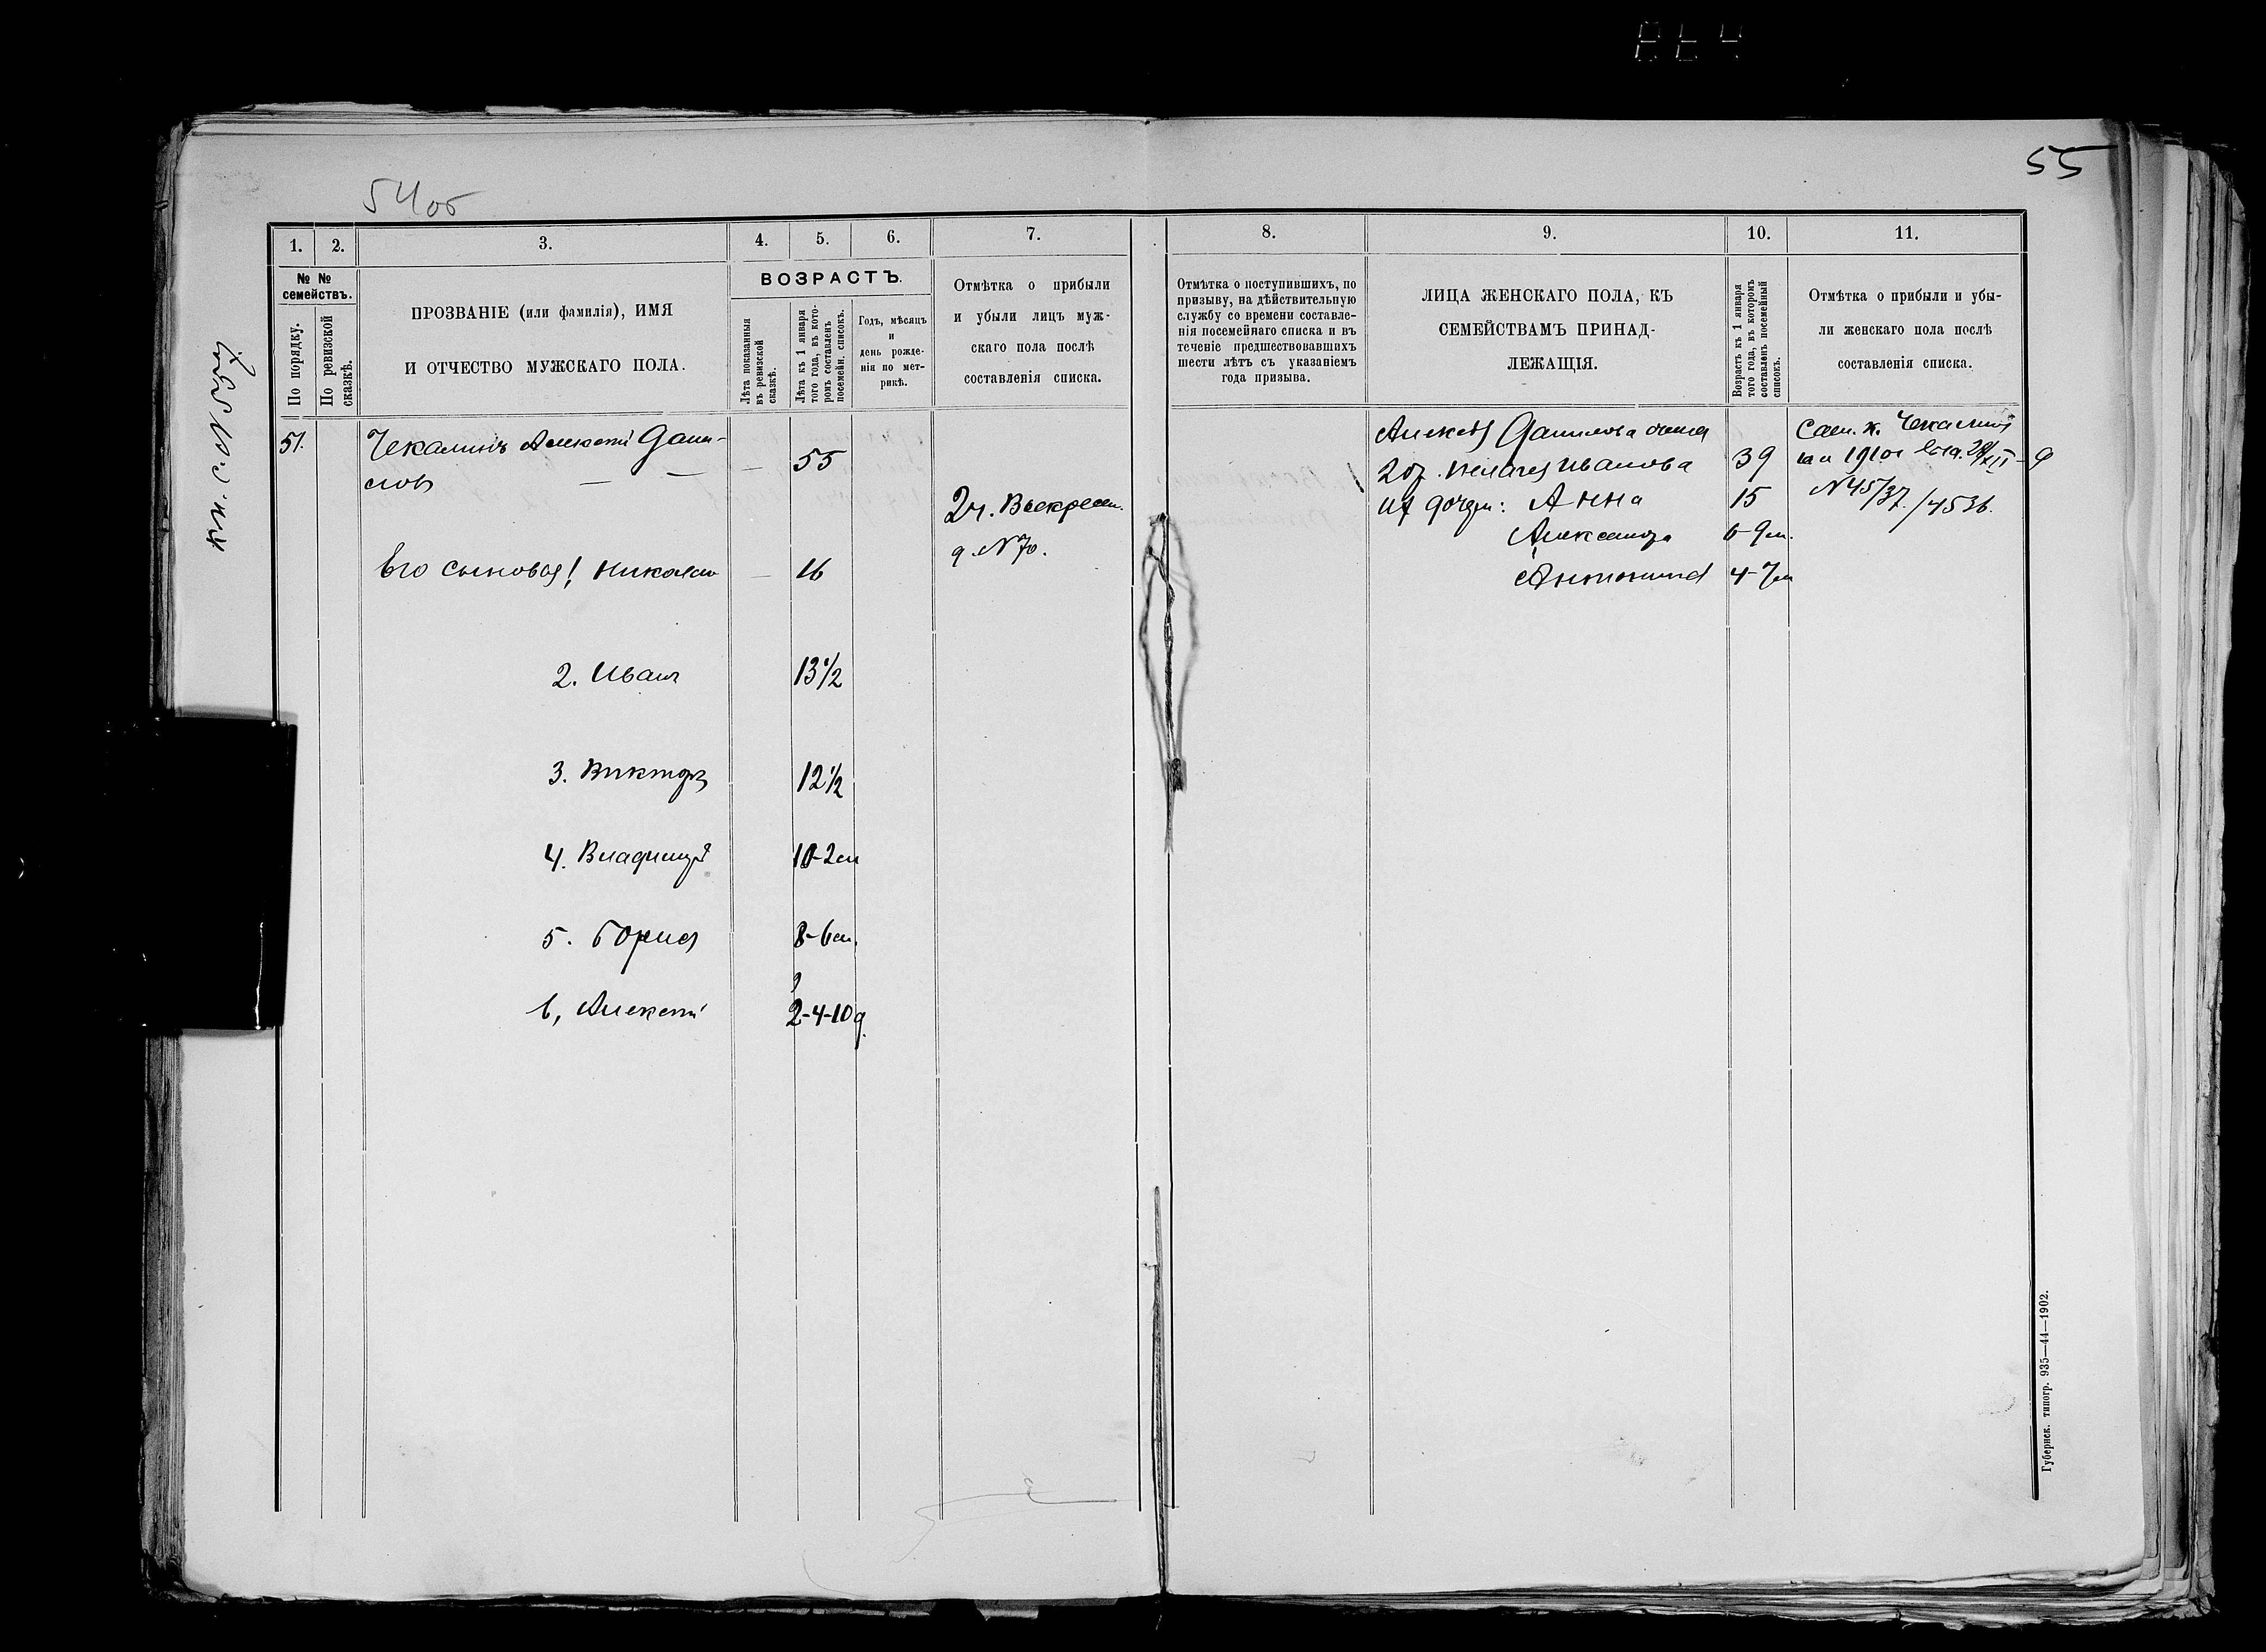 55
54об
1.
2.
3.
4.
5.
6.
7.
№ №
семействъ.
По порядку.
По ревизской
сказкѣ.
ПРОЗВАНІЕ (или фамилія), ИМЯ
И ОТЧЕСТВО МУЖСКАГО ПОЛА.
ВОЗРАСТЪ.
Лѣта показанныя
въ ревизской
сказкѣ.
Лѣта къ 1 января
того года, въ кото-
ромъ составленъ
посемейн. списокъ.
Годъ, мѣсяцъ
и
день рожде-
нія по мет-
рикѣ.
Отмѣтка о прибыли
и убыли лицъ муж-
скаго пола послѣ
составленія списка.
51.
Чекалинъ Алексѣй Дани-
ловъ
— 55
2 ч. Воскресен.
д. №70.
Его сыновья: Николай — 16
2. Иванъ 13½
3. Викторъ 12½
4. Владиміръ 10-2м
5. Борисъ 8-6м.
6, Алексѣй 2-4-10д.
8.
9.
10.
11.
Отмѣтка о поступившихъ, по
призыву, на дѣйствительную
службу со времени составле-
нія посемейнаго списка и въ
теченіе предшествовавшихъ
шести лѣтъ съ указаніемъ
года призыва.
ЛИЦА ЖЕНСКАГО ПОЛА, КЪ
СЕМЕЙСТВАМЪ ПРИНАД-
ЛЕЖАЩІЯ.
Возрастъ къ 1 января
того года, въ которомъ
составленъ посемейный
списокъ.
Отмѣтка о прибыли и убы-
ли женскаго пола послѣ
составленія списка.
Алексѣя Данилова жена
2 бр. Пелагея Иванова 39
их дочери: Анна 15
Александра 6-9м.
Антонина 4-7м
Чекалина
1910г
№45/37/4536.
Губернск. типогр. 935—44—1902.